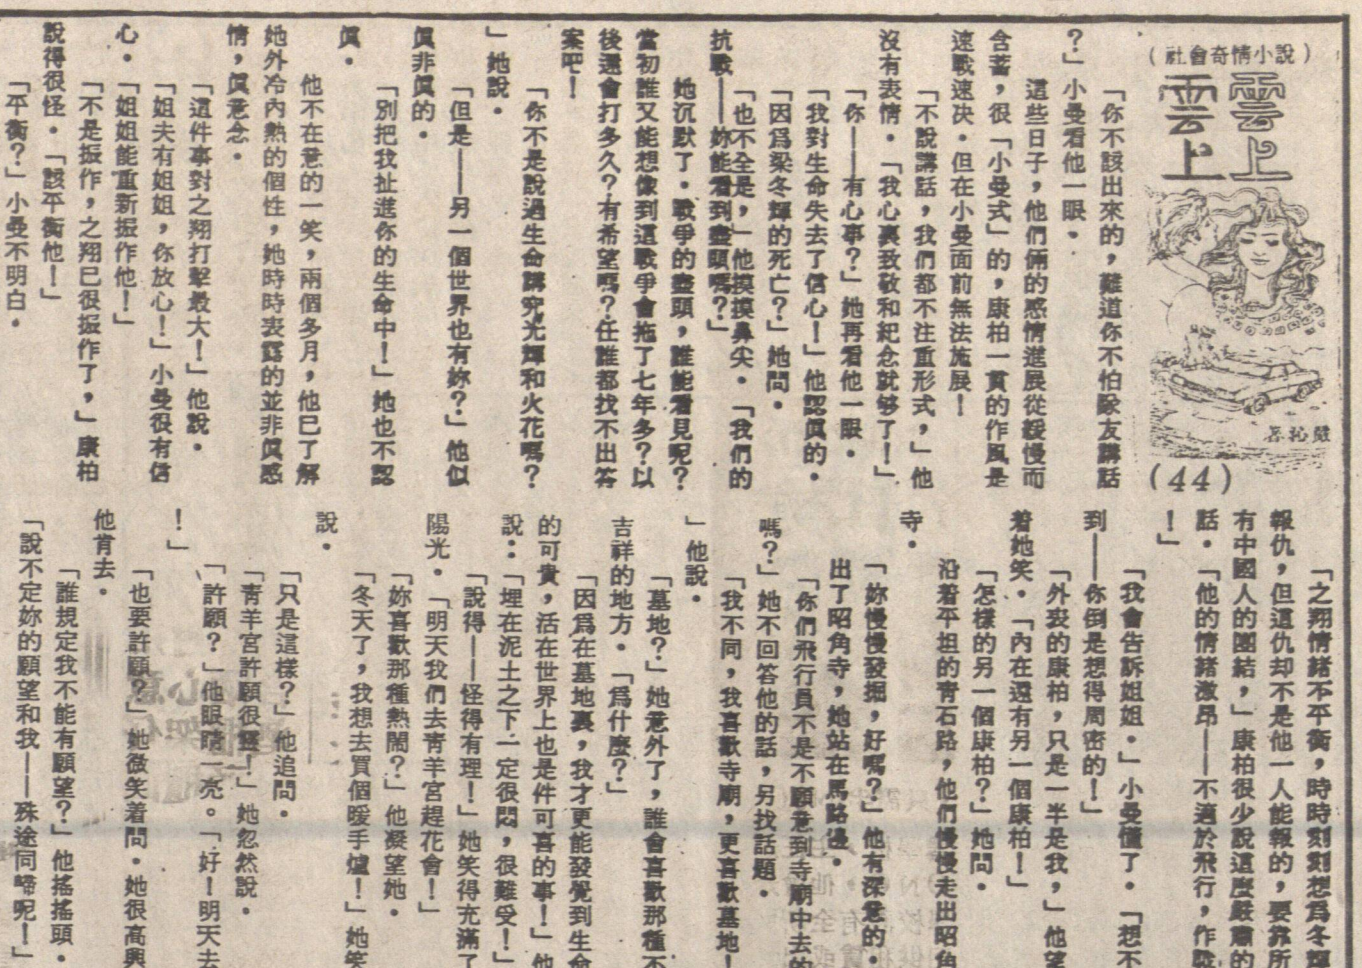 （社會奇情小說）
雲上
雲上
嚴沁著
(44)
「你不該出來的，難道你不怕隊友講話
？」小曼看他一眼。
這些日子，他們倆的感情進展從緩慢而
含蓄，很「小曼式」的，康柏一貫的作風是
速戰速决。但在小曼面前無法施展！
「不說講話，我們都不注重形式，」他
沒有表情。「我心裏致敬和紀念就够了！」
「你——有心事？」她再看他一眼。
「我對生命失去了信心！」他認眞的。
「因爲梁冬輝的死亡？」她問。
「也不全是，」他摸摸鼻尖。「我們的
抗戰——妳能看到盡頭嗎？」
她沉默了。戰爭的盡頭，誰能看見呢？
當初誰又能想像到這戰爭會拖了七年多？以
後還會打多久？有希望嗎？任誰都找不出答
案吧！
「你不是說過生命講究光輝和火花嗎？
」她說。
「但是——另一個世界也有妳？」他似
眞非眞的。
「別把我扯進你的生命中！」她也不認
眞。
他不在意的一笑，兩個多月，他已了解
她外冷內熱的個性，她時時表露的並非眞感
情，眞意念。
「這件事對之翔打擊最大！」他說。
「姐夫有姐姐，你放心！」小曼很有信
心。「姐姐能重新振作他！」
「不是振作，之翔已很振作了，」康柏
說得很怪。「該平衡他！」
「平衡？」小曼不明白。
「之翔情緒不平衡，時時刻刻想爲冬輝
報仇，但這仇却不是他一人能報的，要靠所
有中國人的團結，」康柏很少說這麼嚴肅的
話。「他的情緒激昂——不適於飛行，作戰
！」
「我會告訴姐姐。」小曼懂了。「想不
到——你倒是想得周密的！」
「外表的康柏，只是一半是我，」他望
着她笑。「內在還有另一個康柏！」
「怎樣的另一個康柏？」她問。
沿着平坦的青石路，他們慢慢走出昭角
寺。
「妳慢慢發掘，好嗎？」他有深意的。
出了昭角寺，她站在馬路邊。
「你們飛行員不是不願意到寺廟中去的
嗎？」她不回答他的話，另找話題。
「我不同，我喜歡寺廟，更喜歡墓地！
」他說。
「墓地？」她意外了，誰會喜歡那種不
吉祥的地方。「爲什麼？」
「因爲在墓地裏，我才更能發覺到生命
的可貴，活在世界上也是件可喜的事！」他
說：「埋在泥土之下一定很悶，很難受！」
「說得——怪得有理！」她笑得充滿了
陽光。「明天我們去青羊宮趕花會！」
「妳喜歡那種熱鬧？」他凝望她。
「冬天了，我想去買個暖手爐！」她笑
說。
「只是這樣？」他追問。
「青羊宮許願很靈！」她忽然說。
「許願？」他眼睛一亮。「好！明天去
！」
「也要許願？」她微笑着問。她很高興
他肯去。
「誰規定我不能有願望？」他搖搖頭。
「說不定妳的願望和我——殊途同歸呢！」